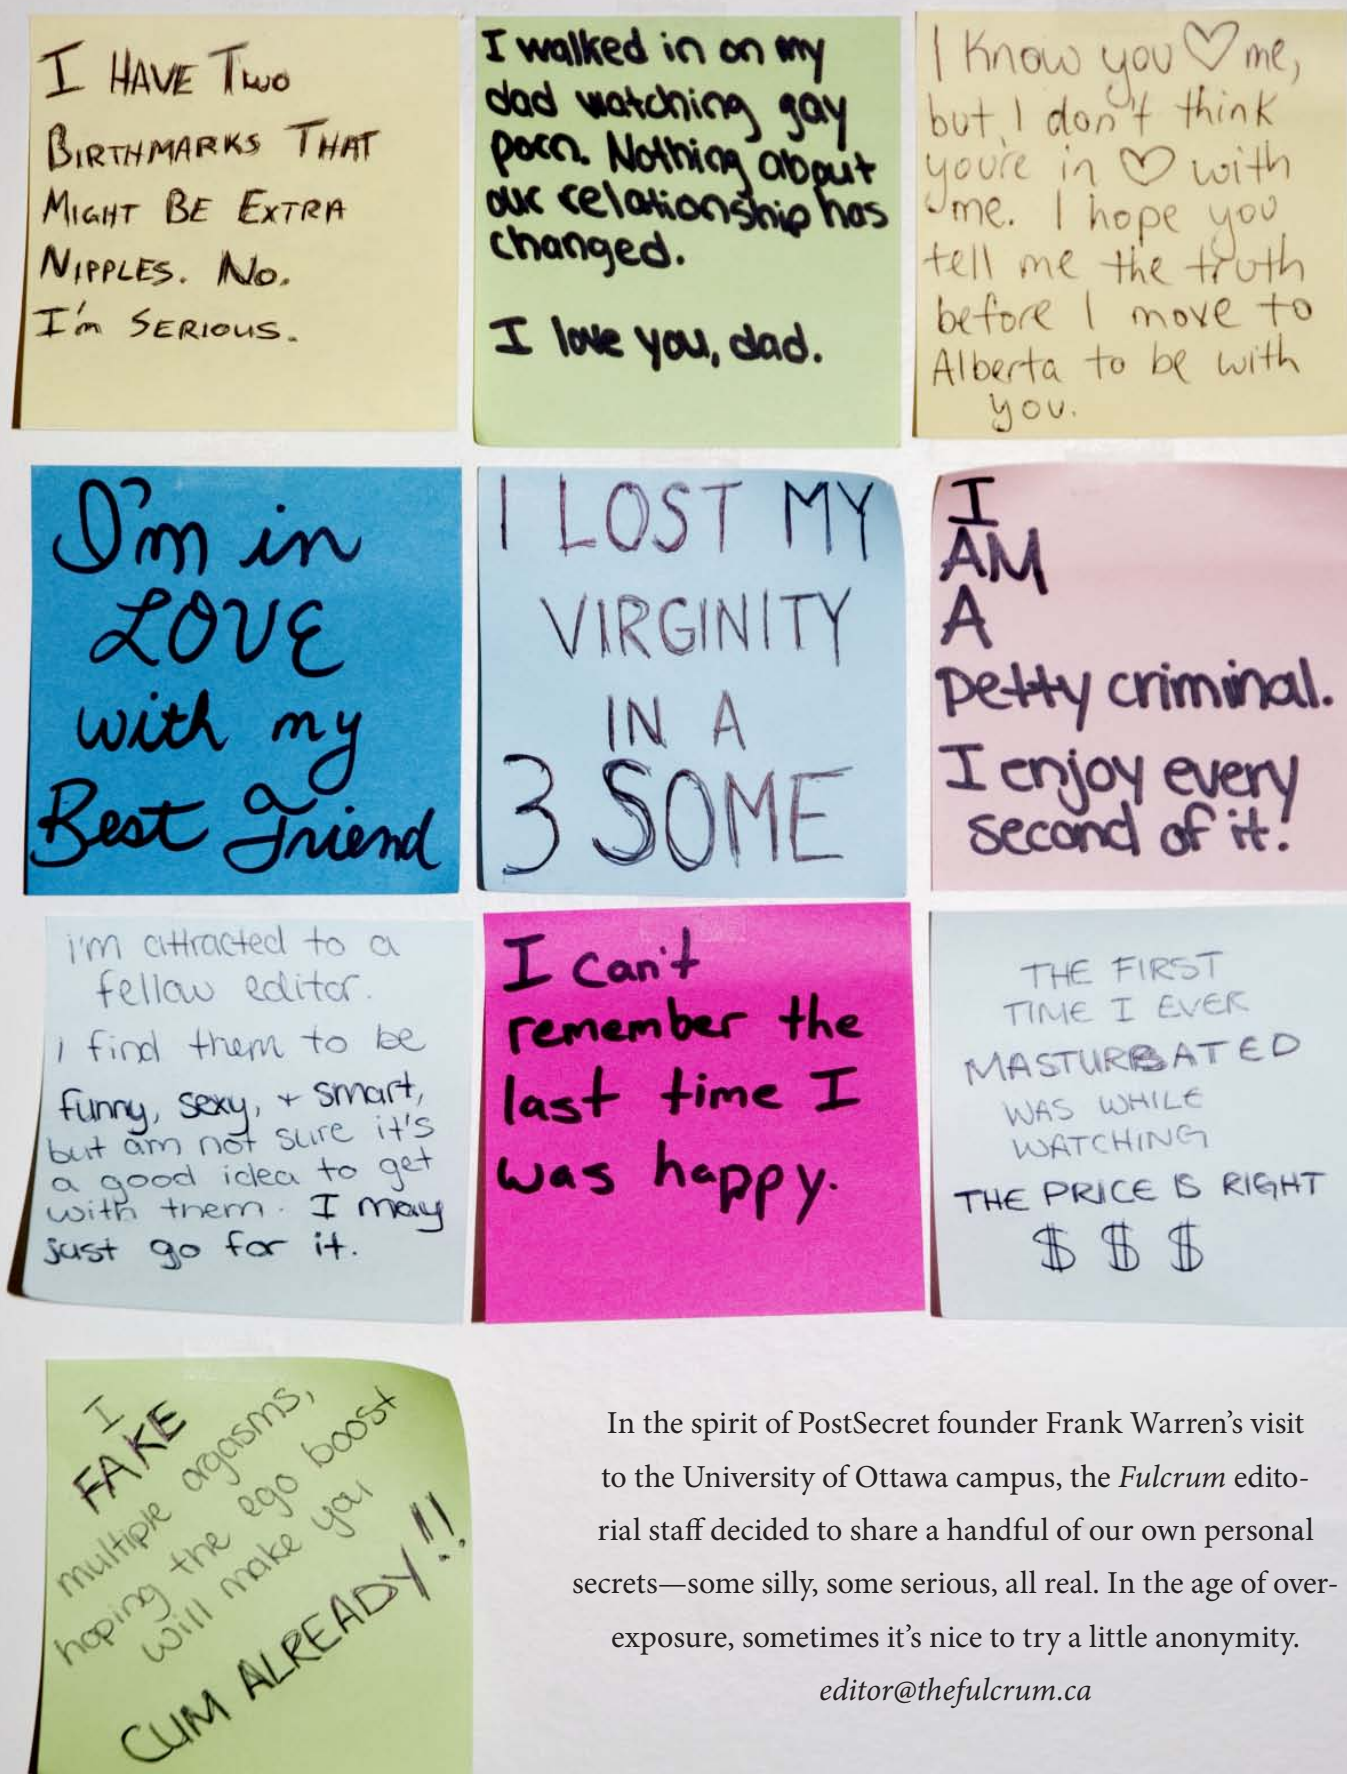 I HAVE TWO
BIRTHMARKS THAT
MIGHT BE EXTRA
NIPPLES. NO.
I'm SERIOUS.
I walked in on my
dad watching gay
porn. Nothing about
our relationship has
changed.
I love you, dad.
I know you ♡ me,
but I don't think
you're in ♡ with
me. I hope you
tell me the truth
before I move to
Alberta to be with
you.
I'm in
LOVE
with my
Best Friend
I LOST MY
VIRGINITY
IN A
3 SOME
I
AM
A
petty criminal.
I enjoy every
second of it!
i'm attracted to a
fellow editor.
I find them to be
funny, sexy, + smart,
but am not sure it's
a good idea to get
with them. I may
just go for it.
I can't
remember the
last time I
was happy.
THE FIRST
TIME I EVER
MASTURBATED
WAS WHILE
WATCHING
THE PRICE IS RIGHT
$ $ $
I
FAKE
multiple orgasms,
hoping the ego boost
will make you
CUM ALREADY!!
In the spirit of PostSecret founder Frank Warren's visit
to the University of Ottawa campus, the Fulcrum edito-
rial staff decided to share a handful of our own personal
secrets—some silly, some serious, all real. In the age of over-
exposure, sometimes it's nice to try a little anonymity.
editor@thefulcrum.ca